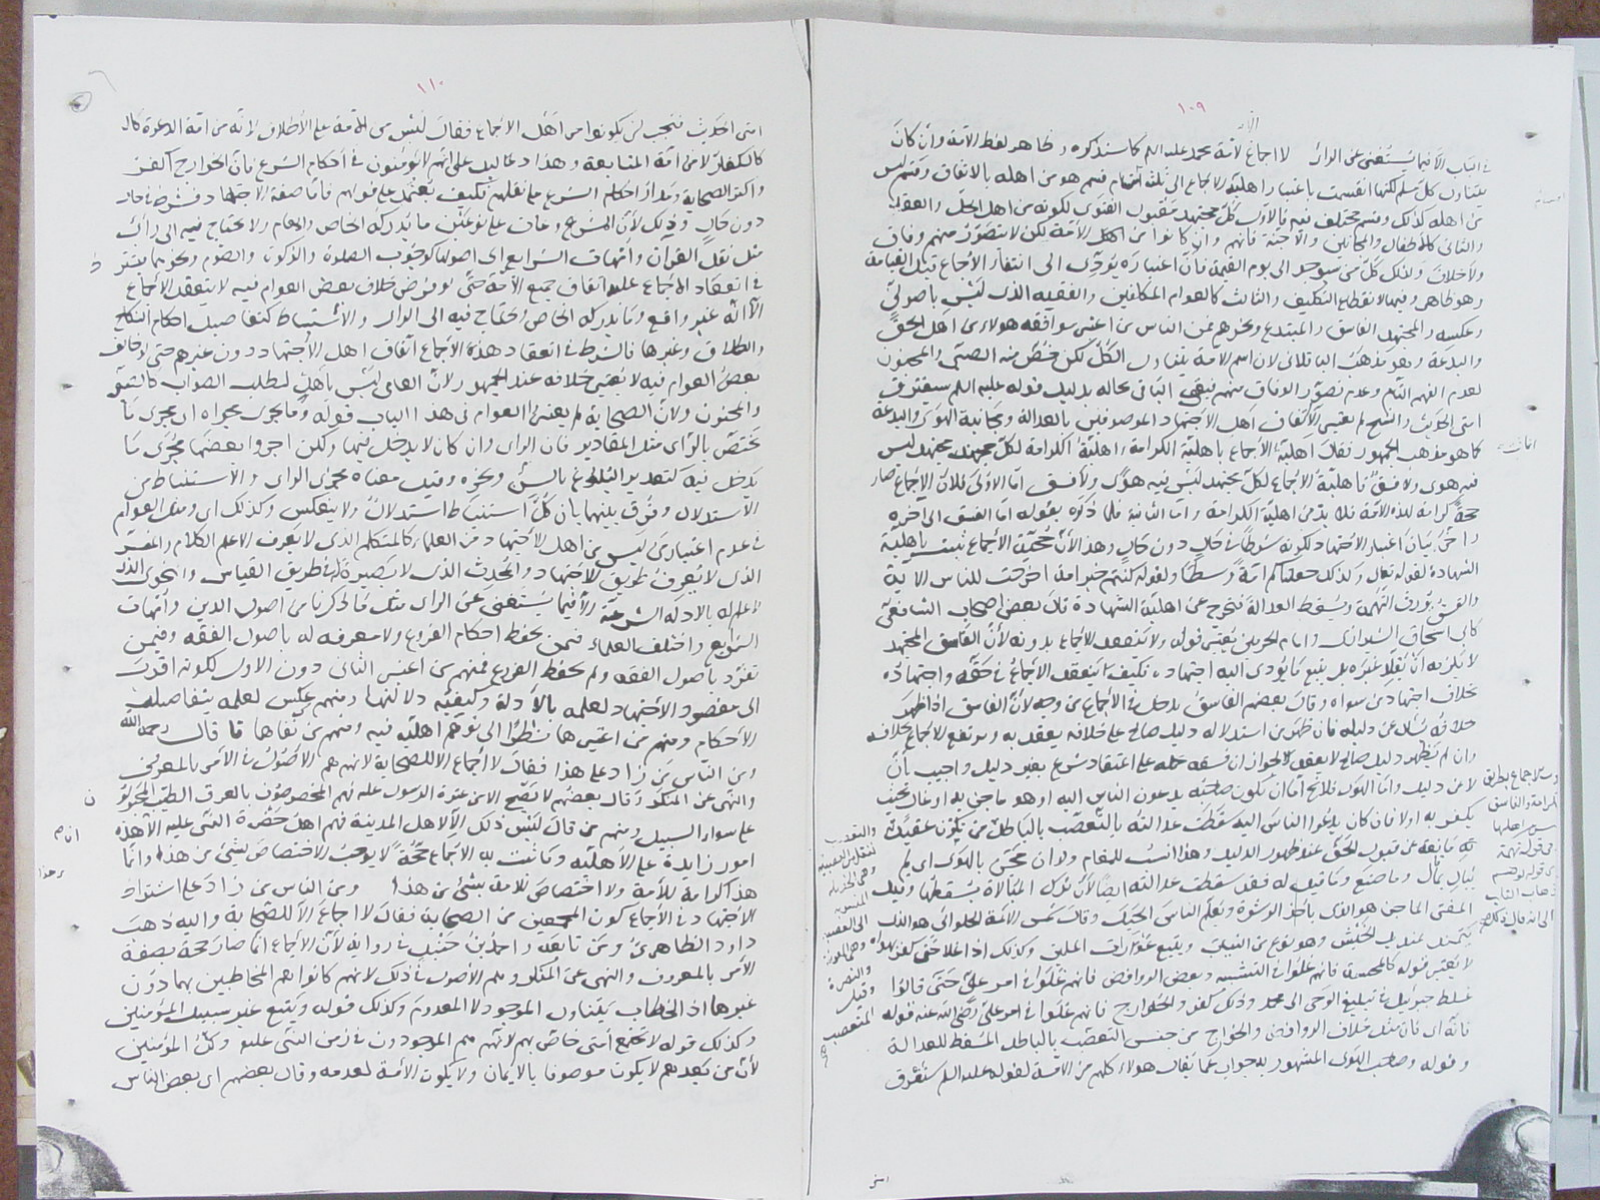 ١٠٩
في الباب الا فيما يستغنى عن الرأي لا اجماع لأمة محمد عليه السلام كما سنذكره وظاهر لفظ الأمة وان كان
يتناول كل مسلم لكنها انقسمت باعتبار اهلية الاجماع الى ثلثة اقسام قسم هو من اهله بالاتفاق وقسم ليس
من اهله كذلك وقسم مختلف فيه فالاول كل مجتهد مقبول الفتوى لكونه من اهل الحل والعقد
والثاني كالاطفال والمجانين والاجنة فانهم وان كانوا من الأمة لكن لا يتصور منهم وفاق
ولا خلاف وكذلك كل من سيوجد الى يوم القيمة فان اعتباره يؤدي الى انتفاء الاجماع قبل القيامة
وهو ظاهر وفيها لانقطاع التكليف والثالث كالعوام المكلفين والفقيه الذي ليس باصولي
وعكسه والمجتهد الفاسق والمبتدع ونحوهم فمن الناس من اعتبر موافقة هؤلاء من اهل الحق
والبدعة وهو مذهب الباقلاني لان اسم الامة يتناول الكل لكن خص منه الصبي والمجنون
لعدم الفهم التام وعدم تصور الوفاق منهم فبقي الباقي بحاله بدليل قوله عليه السلم ستفترق
امتي الحديث والشيخ لم يعتبر الا اتفاق اهل الاجتهاد الموصوفين بالعدالة ومجانبة الهوى والبدعة
كما هو مذهب الجمهور فقال اهلية الاجماع باهلية الكرامة واهلية الكرامة لكل مجتهد ليس
فيه هوى ولا فسق فاهلية الاجماع لكل مجتهد ليس فيه هوى ولا فسق اما الاولى فلان الاجماع صار
حجة كرامة لهذه الامة فلا بد من اهلية الكرامة واما الثانية فلما ذكره بقوله اما الفسق الى اخره
واخر بيان اعتبار الاجتهاد لكونه شرطا في حال دون حال وهذا لأن حجية الاجماع تثبت باهلية
الشهادة لقوله تعالى وكذلك جعلناكم امة وسطا ولقوله كنتم خير امة اخرجت للناس الآية
والفسق يورث التهمة ويسقط العدالة فيخرج عن اهلية الشهادة قال بعض اصحاب الشافعي
كأبي اسحاق الشيرازي وامام الحرمين يعتبر قوله ولا ينعقد الاجماع بدونه لأن الفاسق المجتهد
لا يلزمه ان يقلد غيره بل يتبع ما يؤدي اليه اجتهاده فكيف ينعقد الاجماع في حقه واجتهاده
بخلاف اجتهاد من سواه وقال بعضهم الفاسق يدخل في الاجماع من وجه لأن الفاسق اذا اظهر
خلافه يسأل عن دليله فان ظهر من استدلاله دليل صالح على خلافه يعتد به ويرتفع الاجماع بخلافه
وان لم يظهر دليل صالح لا يعتد به لجواز ان فسقه حمله على اعتقاد شرع بغير دليل واجيب بأن
لا من دليل واما الهوى فلا يخ اما ان يكون صاحبه يدعون الناس اليه او هو ماجن به او غال بحيث
يكفر به اولا فان كان يدعوا الناس اليه سقطت عدالته بالتعصب بالباطل
عن قبول الحق عند ظهور الدليل وهذا انسب للمقام وان مجن بالهوى اي لم
يبال بما قال وما صنع وما قيل له فقد سقطت عدالته ايضا لأن ترك المبالاة يسقطها وقيل
المفتي الماجن هو الذي يأخذ الرشوة ويعلم الناس الحيل وقال شمس الائمة الحلواني هو الذي
وهو نوع من ويتبع عورات المسلمين وكذلك اذا غلا حتى كفر بهواه
لا يعتبر قوله كالمجسمة فانهم غلوا في التشبيه وبعض الروافض فانهم غلوا في امر علي حتى قالوا
غلط جبرئيل في تبليغ الوحي الى محمد وذلك كفر والخوارج فانهم غلوا في امر علي رضي الله عنه قوله
فانه اي فان مثل خلاف الروافض والخوارج من جنس التعصب بالباطل المسقط للعدالة
وقوله وصاحب الهوى المشهور به جواب عما يقال هؤلاء كلهم من الامة لقوله عليه السلم ستفترق
امتي
والتعصب
المتعصب
١١٠
امتي الحديث فيجب ان يكونوا من اهل الاجماع فقال ليس من الامة على الاطلاق لانه من امة الدعوة كال
كالكفار لا من امة المتابعة وهذا دليل على انهم لا يؤتمنون في احكام الشرع فان الخوارج اكفر
واكثر الصحابة ومدار احكام الشرع على نقلهم فكيف يعتمد على قولهم فاما صفة الاجتهاد فشرط في حال
دون حال وذلك لأن المشروعات على نوعين ما يدركه الخاص والعام ولا يحتاج فيه الى رأي
مثل نقل القرآن وامهات الشرايع اي اصولها كوجوب الصلوة والزكوة والصوم ونحوها يشترط
في انعقاد الاجماع عليه اتفاق جميع الامة حتى لو فرض خلاف بعض العوام فيه لا ينعقد الاجماع
الا انه غير واقع وما يدركه الخاص ويحتاج فيه الى الرأي والاستنباط كتفاصيل احكام النكاح
والطلاق وغيرها فالشرط في انعقاد هذا الاجماع اتفاق اهل الاجتهاد دون غيرهم حتى لو خالف
بعض العوام فيه لا يعتبر خلافه عند الجمهور لان العامي ليس باهل لطلب الصواب كالصبي
والمجنون ولان الصحابة لم يعتبروا العوام في هذا الباب قوله وما يجري مجراه اي مجرى ما
يختص بالرأي مثل المقادير فان الرأي وان كان لا يدخل فيها ولكن اجروا بعضها مجرى ما
يدخل فيه كتقدير البلوغ بالسن ونحوه وقيل معناه مجرى الرأي والاستنباط من
الاستدلال وفرق بينهما بان كل استنباط استدلال ولا ينعكس وكذلك اي ومثل العوام
في عدم اعتباره من ليس من اهل الاجتهاد من العلماء كالمتكلم الذي لا يعرف الا علم الكلام والمفسر
الذي لا يعرف طريق الاجتهاد والمحدث الذي لا بصيرة له في طريق القياس والنحوي الذي
لا علم له بالادلة الشرعية الا فيما يستغنى عن الرأي مثل ما ذكرنا من اصول الدين وامهات
الشرايع واختلف العلماء فيمن يحفظ احكام الفروع ولا معرفة له باصول الفقه وفيمن
تفرد باصول الفقه ولم يحفظ الفروع فمنهم من اعتبر الثاني دون الاول لكونه اقرب
الى مقصود الاجتهاد لعلمه بالادلة وكيفية دلالتها ومنهم من عكس لعلمه بتفاصيل
الاحكام ومنهم من اعتبرهما نظرا الى نوع اهلية فيه ومنهم من نفاها قال رحمه الله
ومن الناس من زاد على هذا فقال لا اجماع الا للصحابة لانهم هم الاصول في الأمر بالمعروف
والنهي عن المنكر وقال بعضهم لا يصح الا من عترة الرسول عليه السلم فهم المخصوصون بالعرق الطيب المجبول
على سواء السبيل ومنهم من قال ليس ذلك الا لأهل المدينة فهم اهل حضرة النبي عليه السلم الا ان هذه
امور زايدة على الاهلية وما ثبت به الاجماع حجة لا يوجب الاختصاص بشيء من هذا وانما
هذا كرامة للأمة ولا اختصاص للامة بشيء من هذا ومن الناس من زاد على اشتراط
الاجتهاد في الاجماع كون المجمعين من الصحابة فقال لا اجماع الا للصحابة واليه ذهب
داود الظاهري ومن تابعه واحمد بن حنبل في رواية لأن الاجماع انما صار حجة بصفة
الأمر بالمعروف والنهي عن المنكر وهم الاصول في ذلك لانهم كانوا هم المخاطبين بهما دون
غيرهم اذ الخطاب يتناول الموجود لا المعدوم وكذلك قوله ويتبع غير سبيل المؤمنين
وكذلك قوله لا تجتمع امتي خاص بهم لأنهم هم الموجودون في زمن النبي عليه السلم وكل المؤمنين
لأن من بعدهم لا يكون موصوفا بالايمان ولا يكون الأمة لعدمه وقال بعضهم اي بعض الناس